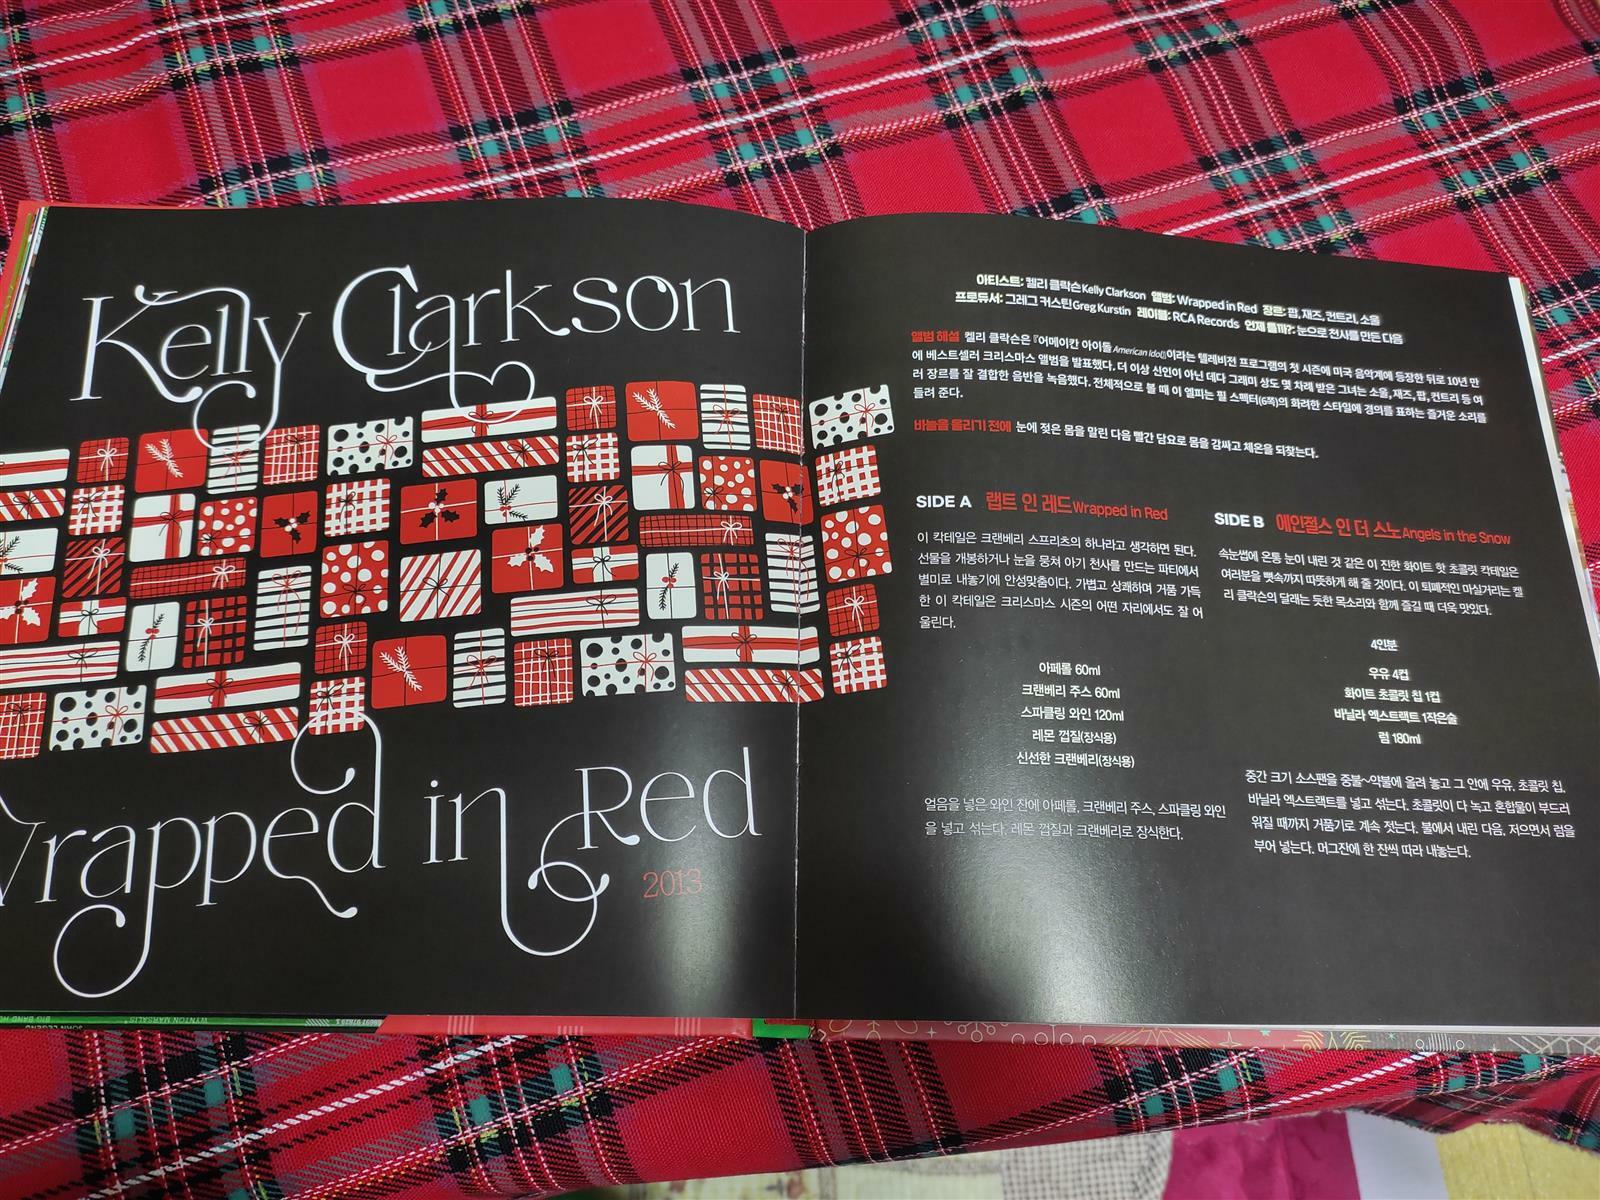 Kelly Clarkson
Wrapped in Red
2013
아티스트: 켈리 클락슨Kelly Clarkson 앨범: Wrapped in Red 장르: 팝, 재즈, 컨트리, 소울
프로듀서: 그레그 커스틴Greg Kurstin 레이블: RCA Records 언제 틀까?: 눈으로 천사를 만든 다음
앨범 해설 켈리 클락슨은 『어메이칸 아이돌American Idol』이라는 텔레비전 프로그램의 첫 시즌에 미국 음악계에 등장한 뒤로 10년 만
에 베스트셀러 크리스마스 앨범을 발표했다. 더 이상 신인이 아닌 데다 그래미 상도 몇 차례 받은 그녀는 소울, 재즈, 팝, 컨트리 등 여
러 장르를 잘 결합한 음반을 녹음했다. 전체적으로 볼 때 이 엘피는 필 스펙터(6쪽)의 화려한 스타일에 경의를 표하는 즐거운 소리를
들려 준다.
바늘을 올리기 전에 눈에 젖은 몸을 말린 다음 빨간 담요로 몸을 감싸고 체온을 되찾는다.
SIDE A 랩트 인 레드Wrapped in Red
이 칵테일은 크랜베리 스프리츠의 하나라고 생각하면 된다.
선물을 개봉하거나 눈을 뭉쳐 아기 천사를 만드는 파티에서
별미로 내놓기에 안성맞춤이다. 가볍고 상쾌하며 거품 가득
한 이 칵테일은 크리스마스 시즌의 어떤 자리에서도 잘 어
울린다.
아페롤 60ml
크랜베리 주스 60ml
스파클링 와인 120ml
레몬 껍질(장식용)
신선한 크랜베리(장식용)
얼음을 넣은 와인 잔에 아페롤, 크랜베리 주스, 스파클링 와인
을 넣고 섞는다. 레몬 껍질과 크랜베리로 장식한다.
SIDE B 에인절스 인 더 스노Angels in the Snow
속눈썹에 온통 눈이 내린 것 같은 이 진한 화이트 핫 초콜릿 칵테일은
여러분을 뼛속까지 따뜻하게 해 줄 것이다. 이 퇴폐적인 마실거리는 켈
리 클락슨의 달래는 듯한 목소리와 함께 즐길 때 더욱 맛있다.
4인분
우유 4컵
화이트 초콜릿 칩 1컵
바닐라 엑스트랙트 1작은술
럼 180ml
중간 크기 소스팬을 중불~약불에 올려 놓고 그 안에 우유, 초콜릿 칩,
바닐라 엑스트랙트를 넣고 섞는다. 초콜릿이 다 녹고 혼합물이 부드러
워질 때까지 거품기로 계속 젓는다. 불에서 내린 다음, 저으면서 럼을
부어 넣는다. 머그잔에 한 잔씩 따라 내놓는다.
JOHN LEGEND
WYNTON MARSALIS